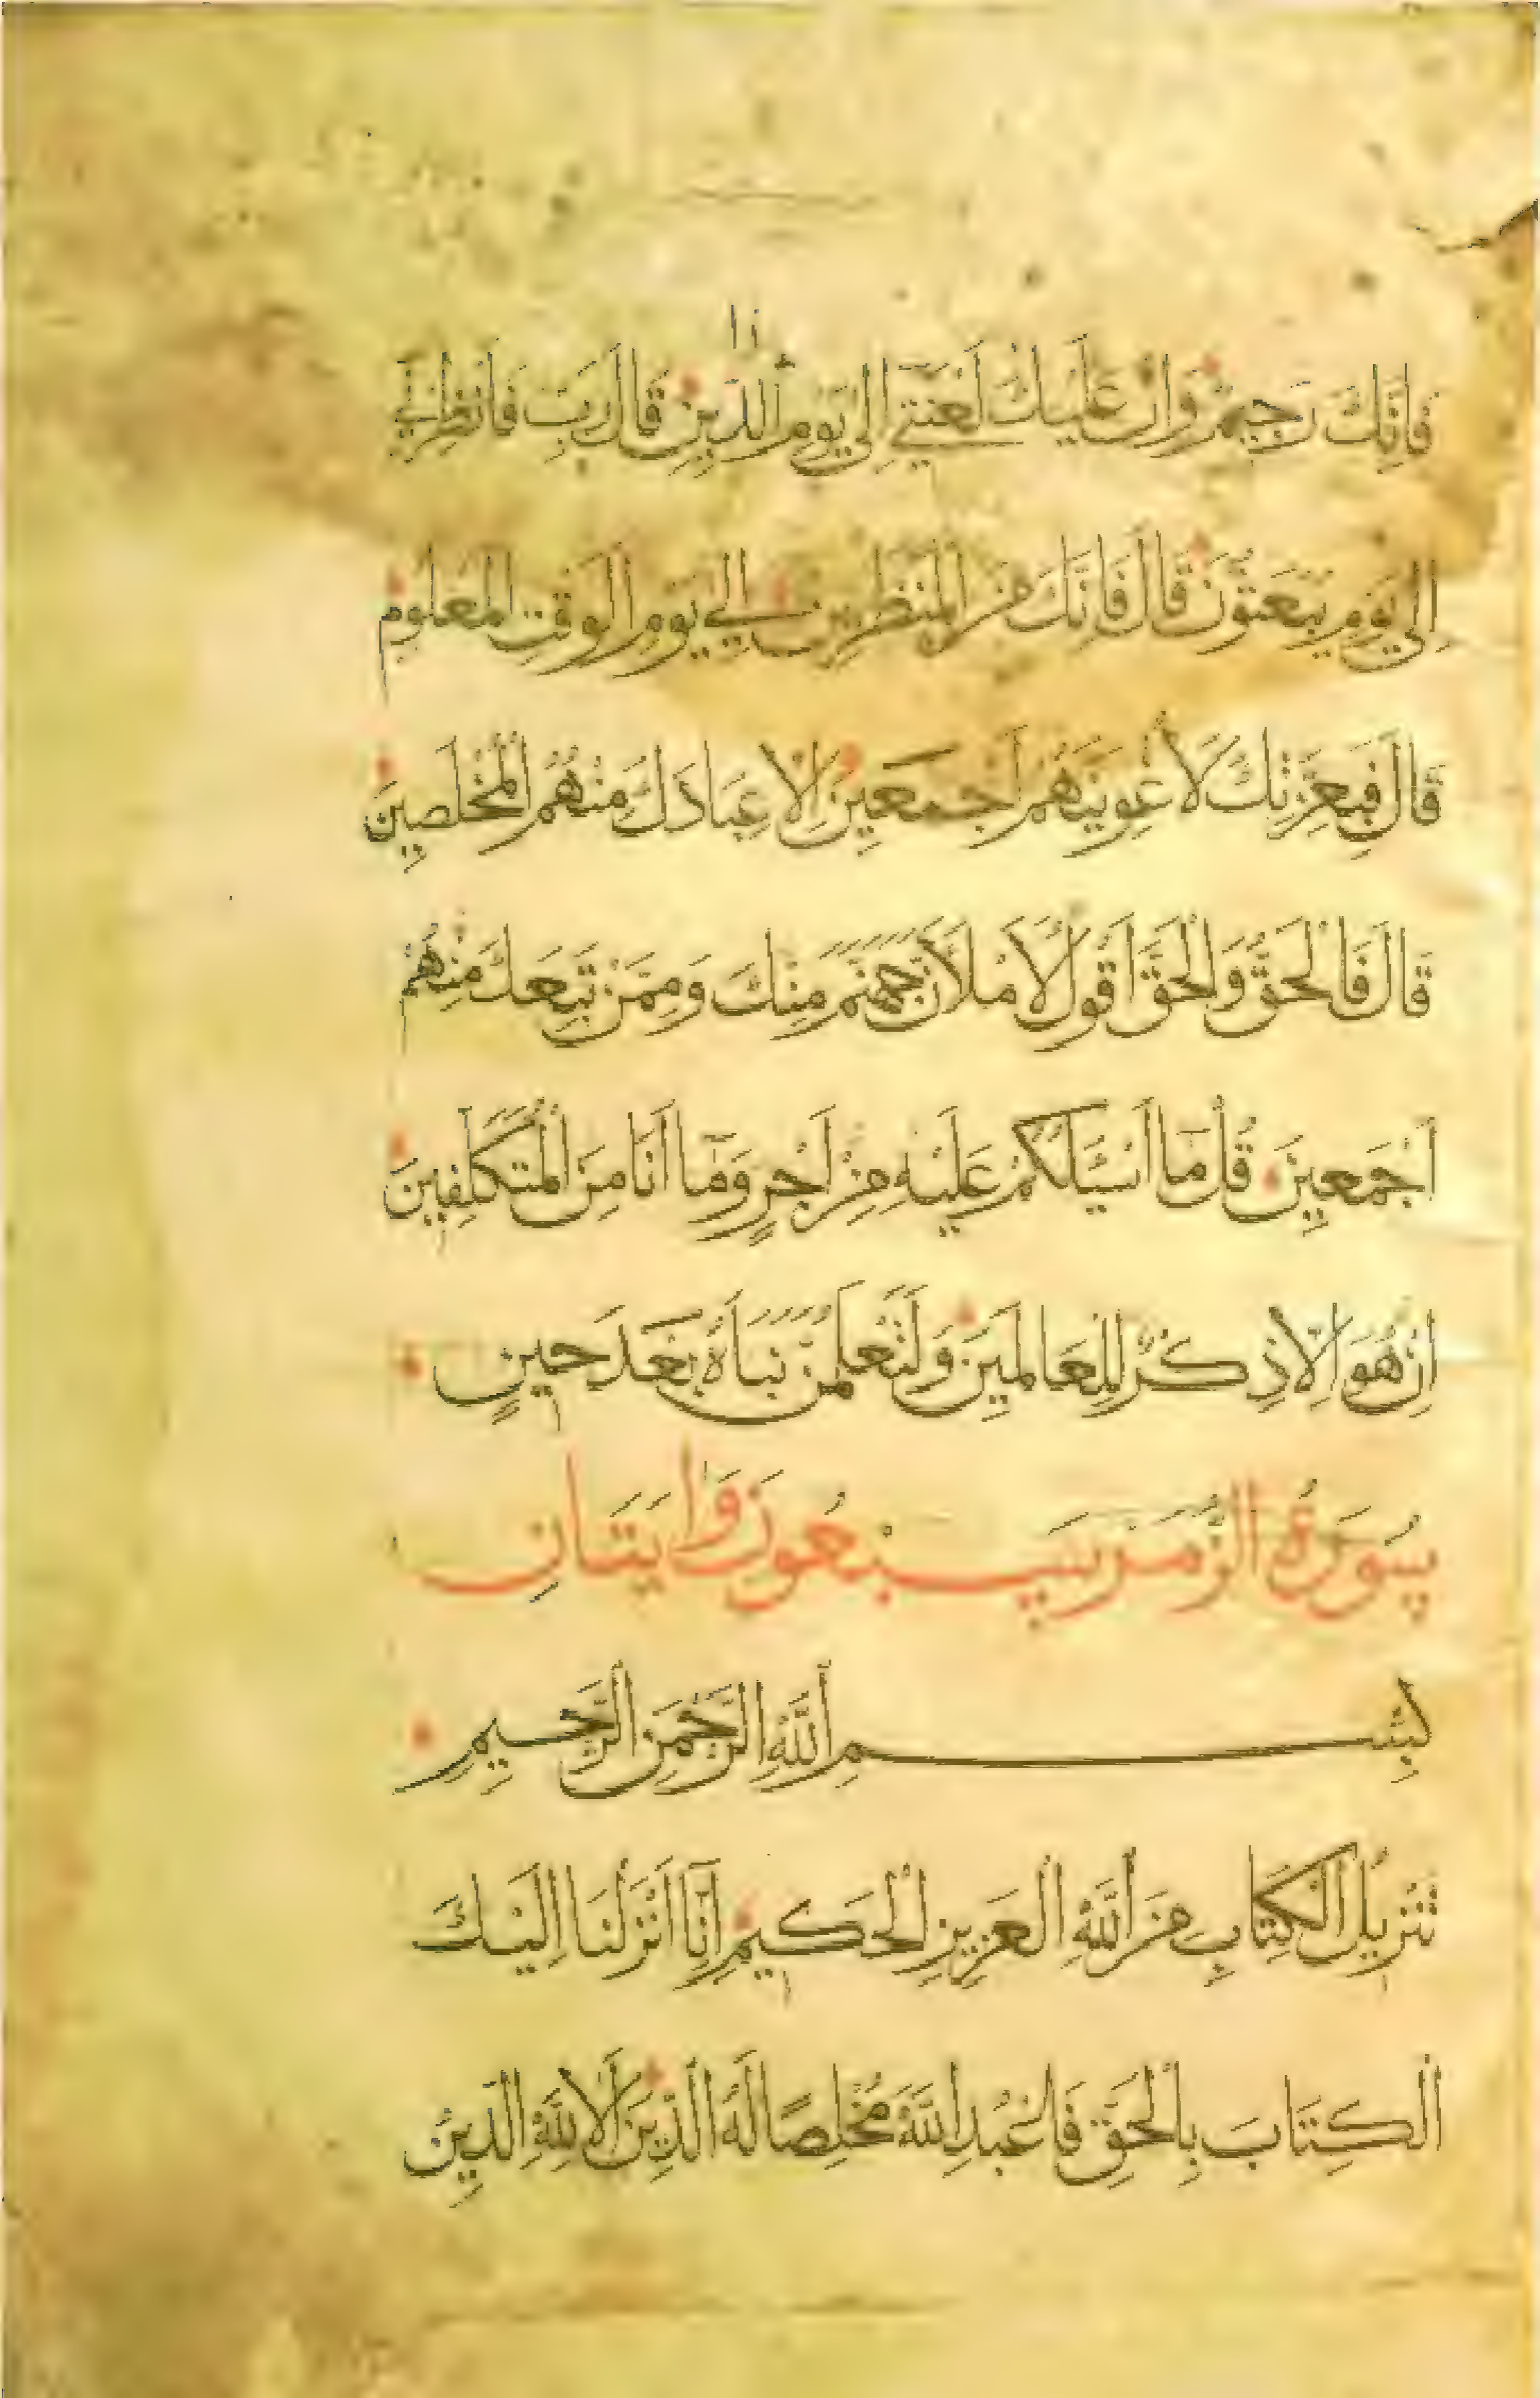 فَإِنَّكَ رَجِيمٌ وَإِنَّ عَلَيْكَ لَعْنَتِي إِلَى يَوْمِ الدِّينِ قَالَ رَبِّ فَأَنْظِرْنِي
إِلَى يَوْمِ يُبْعَثُونَ قَالَ فَإِنَّكَ مِنَ الْمُنْظَرِينَ إِلَى يَوْمِ الْوَقْتِ الْمَعْلُومِ
قَالَ فَبِعِزَّتِكَ لَأُغْوِيَنَّهُمْ أَجْمَعِينَ إِلَّا عِبَادَكَ مِنْهُمُ الْمُخْلَصِينَ
قَالَ فَالْحَقُّ وَالْحَقَّ أَقُولُ لَأَمْلَأَنَّ جَهَنَّمَ مِنْكَ وَمِمَّنْ تَبِعَكَ مِنْهُمْ
أَجْمَعِينَ قُلْ مَا أَسْئَلُكُمْ عَلَيْهِ مِنْ أَجْرٍ وَمَا أَنَا مِنَ الْمُتَكَلِّفِينَ
إِنْ هُوَ إِلَّا ذِكْرٌ لِلْعَالَمِينَ وَلَتَعْلَمُنَّ نَبَأَهُ بَعْدَ حِينٍ
سُورَةُ الزُّمَرِ سَبْعُونَ وَايَتَانِ
بِسْمِ اللَّهِ الرَّحْمَنِ الرَّحِيمِ
تَنْزِيلُ الْكِتَابِ مِنَ اللَّهِ الْعَزِيزِ الْحَكِيمِ إِنَّا أَنْزَلْنَا إِلَيْكَ
الْكِتَابَ بِالْحَقِّ فَاعْبُدِ اللَّهَ مُخْلِصًا لَهُ الدِّينَ أَلَا لِلَّهِ الدِّينُ